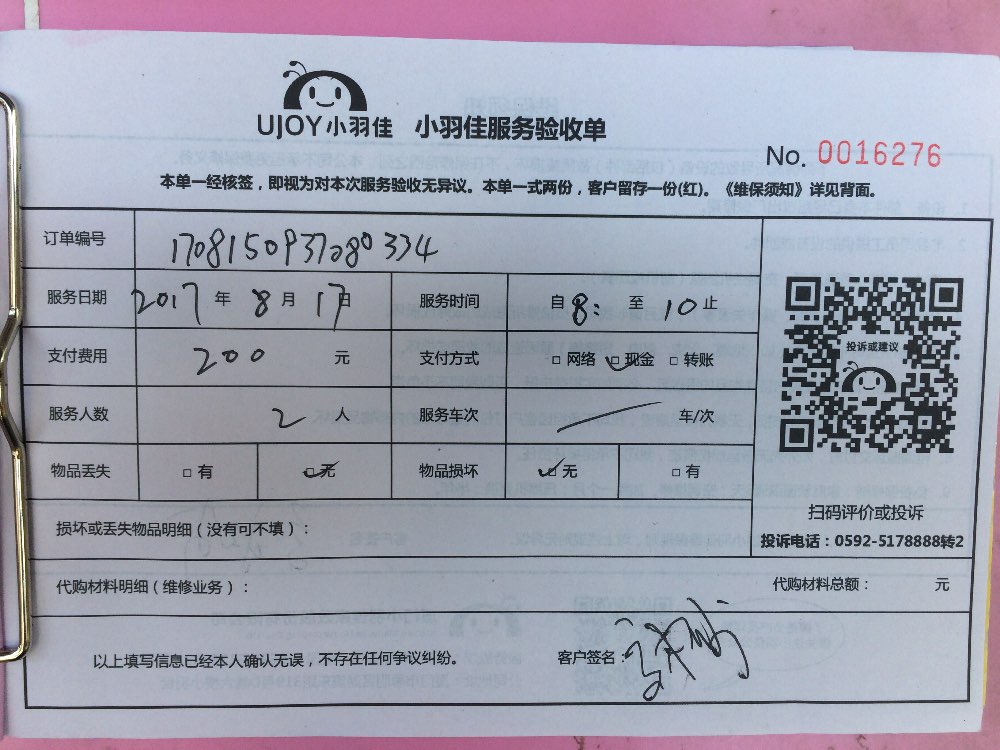 UJOY小羽佳 小羽佳服务验收单
No. 0016276
本单一经核签，即视为对本次服务验收无异议。本单一式两份，客户留存一份(红)。《维保须知》详见背面。
订单编号 1708150937080334
服务日期 2017 年 8 月 17 日 服务时间 自 8: 至 10 止
支付费用 200 元 支付方式 □ 网络 □ 现金 □ 转账
投诉或建议
服务人数 2 人 服务车次 车/次
物品丢失 □ 有 □ 无 物品损坏 □ 无 □ 有
扫码评价或投诉
损坏或丢失物品明细（没有可不填）：
投诉电话：0592-5178888转2
代购材料明细（维修业务）： 代购材料总额： 元
以上填写信息已经本人确认无误，不存在任何争议纠纷。 客户签名：